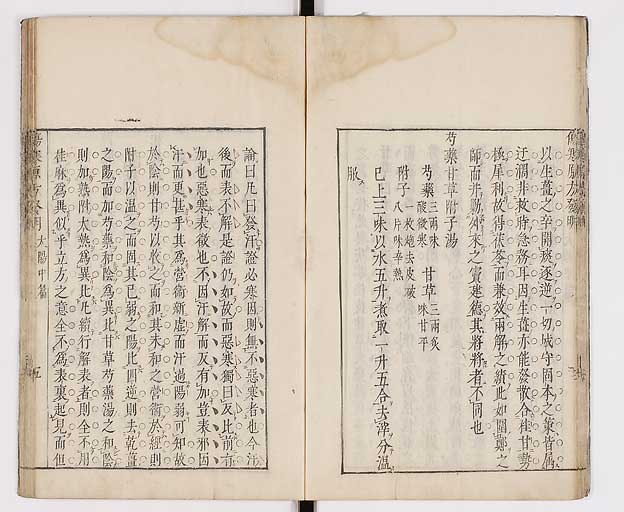 以生薑之辛開痰逐逆一切城守固本之策皆屬
迂濶非救時急務耳因生薑亦能發散合桂甘勢
極犀利故得茯苓而兼效兩解之績此如圍鄭之
師而并勤外來之寶建德其將將者不同也
芍藥甘草附子湯
芍藥 三兩味酸微寒 甘草 三兩炙味甘平
附子 一枚炮去皮破八片味辛熱
已上三味以水五升煮取一升五合去滓分溫
服
傷寒原方發明 太陽中篇
論曰凡曰發汗證必寒因則無不惡寒者也今汗
後而表不解是證仍如故而惡寒獨曰反比前有
加也惡寒表徵也不因汗解而反有加豈表邪因
汗而更甚乎其為營衞新虛而汗過陽弱可知故
於陰則甘芍以收之而和其未和之營衞於經則
附子以溫之而固其已弱之陽此四逆則去乾薑
之陽而加芍藥和陰為異比甘草芍藥湯之和陰
則加熟附大熱為異比凡續行解表者則全不用
桂麻為異似乎立方之意全不為表裏起見而但